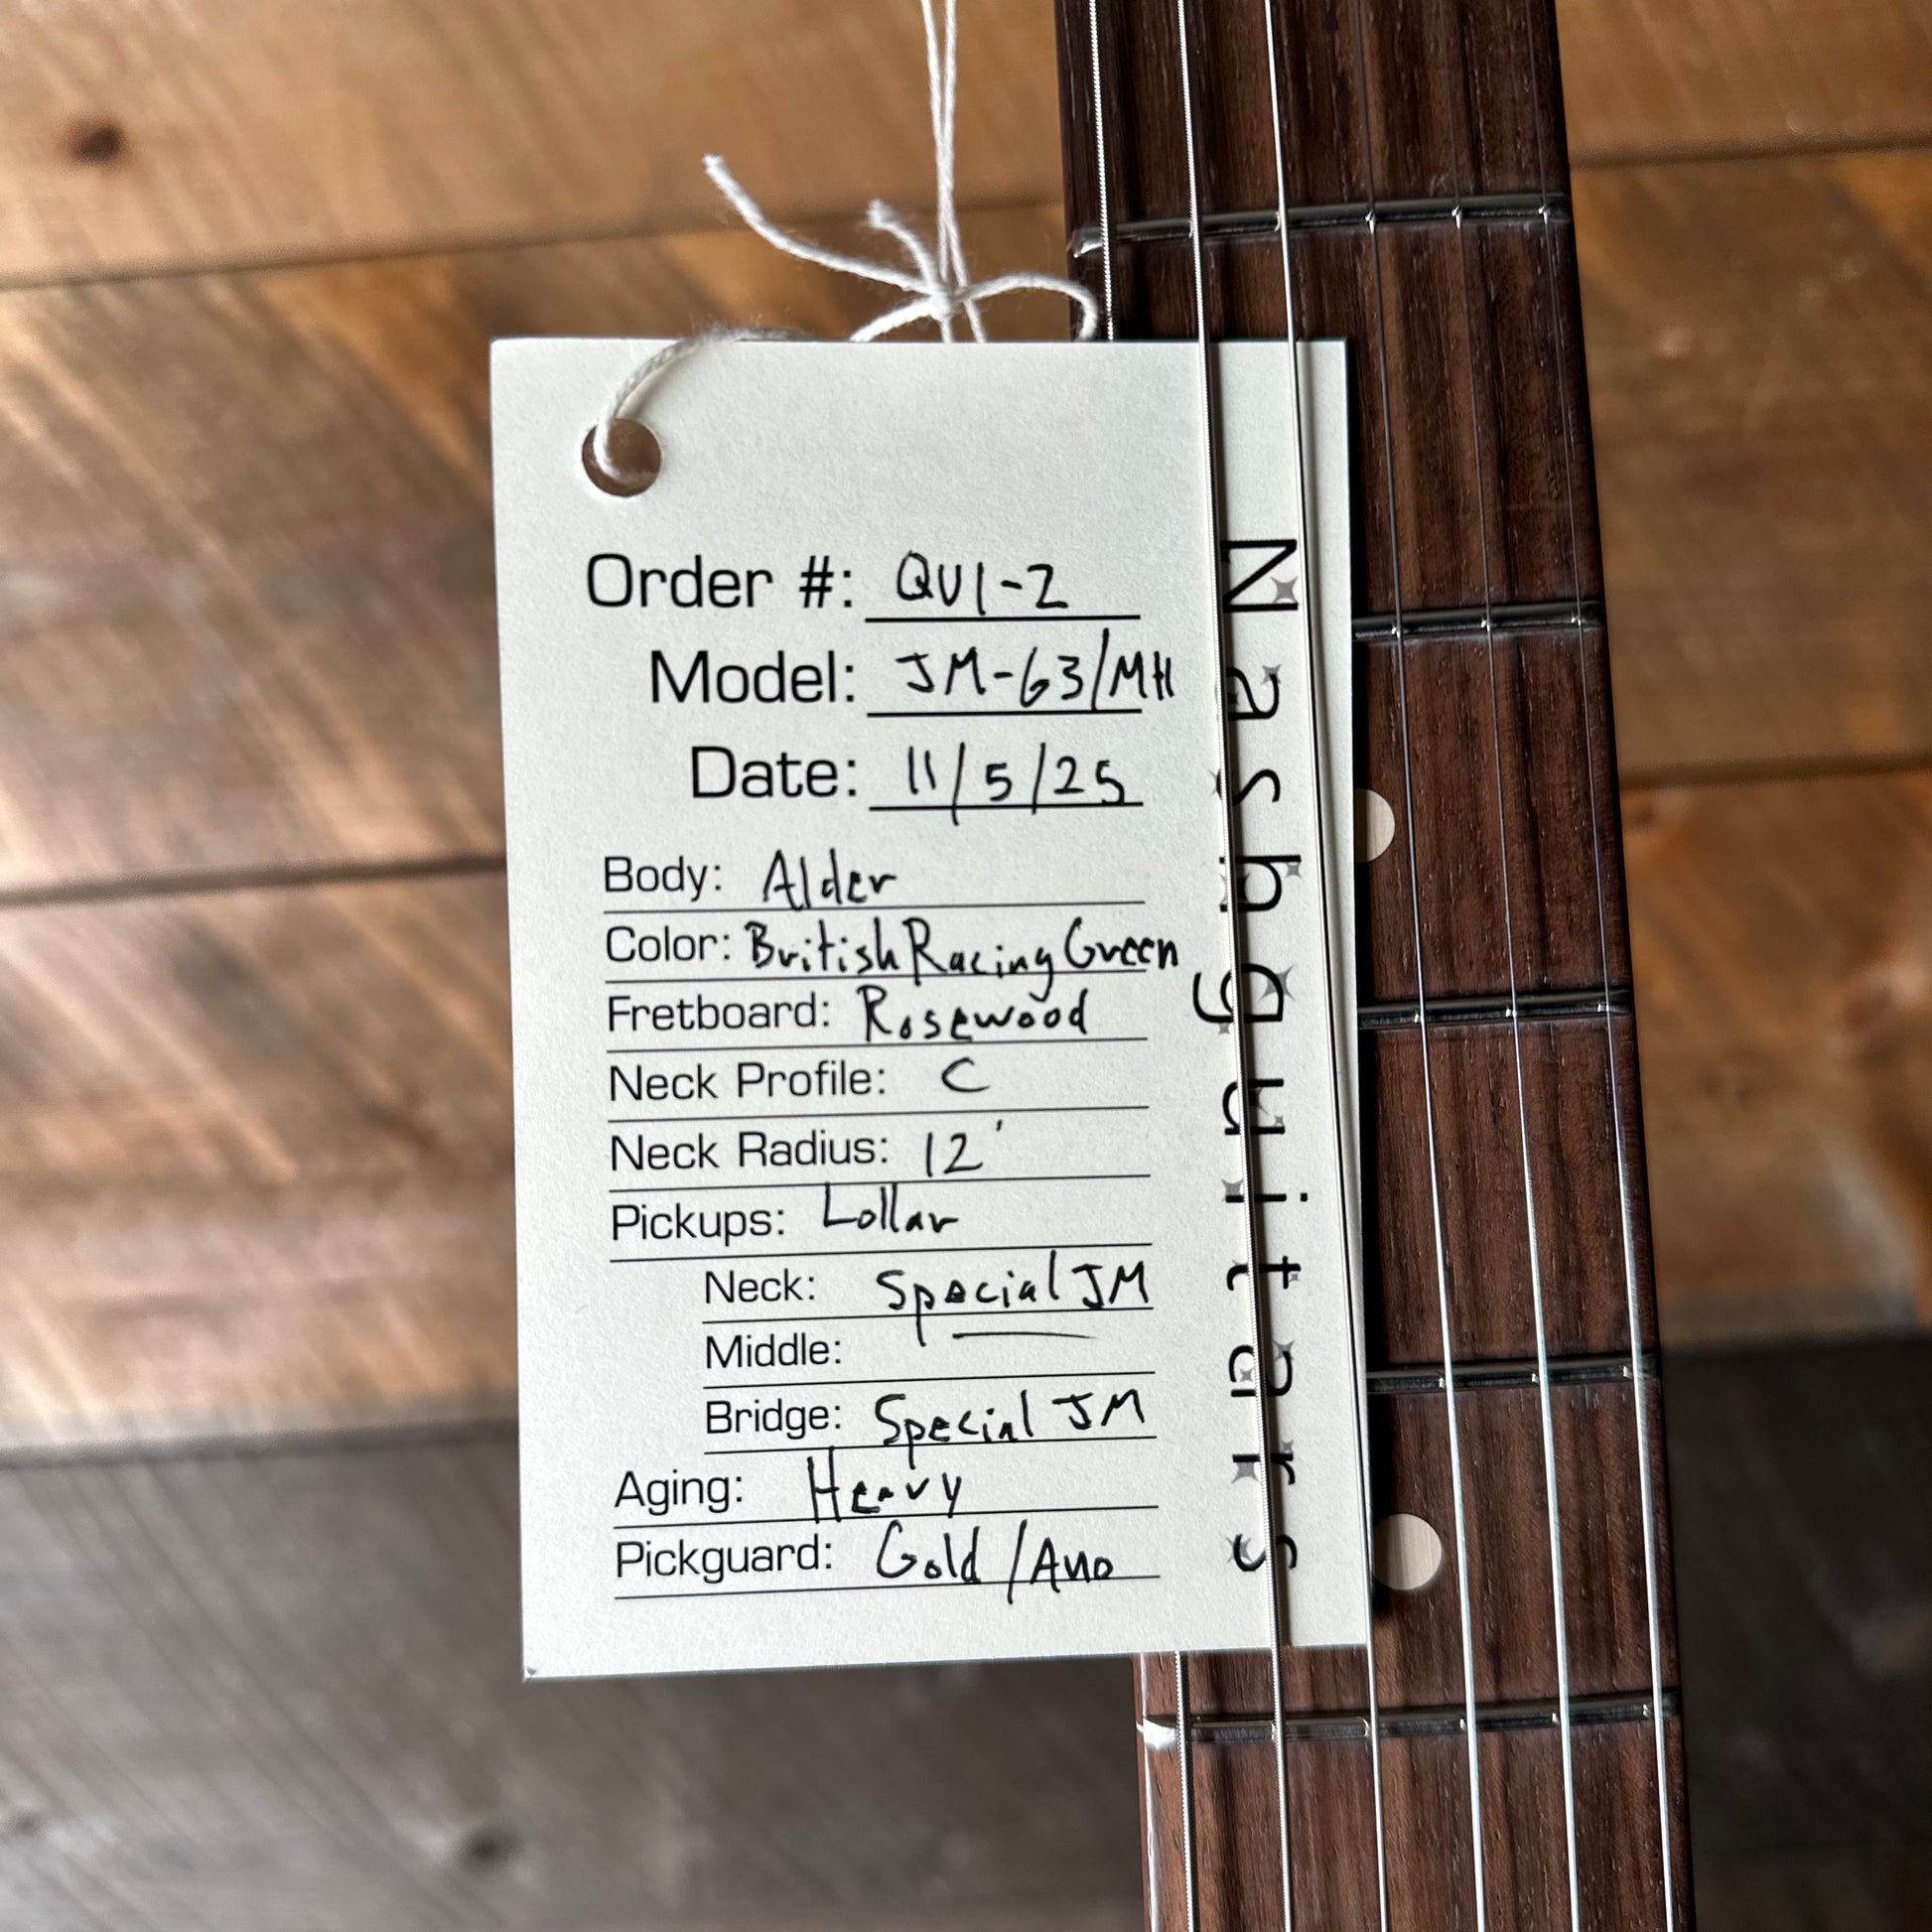 Order #: QU1-2
Model: JM-63/MH
Date: 11/5/25
Body: Alder
Color: British Racing Green
Fretboard: Rosewood
Neck Profile: C
Neck Radius: 12'
Pickups: Lollar
Neck: Special JM
Middle:
Bridge: Special JM
Aging: Heavy
Pickguard: Gold/Ano
Nashguitars